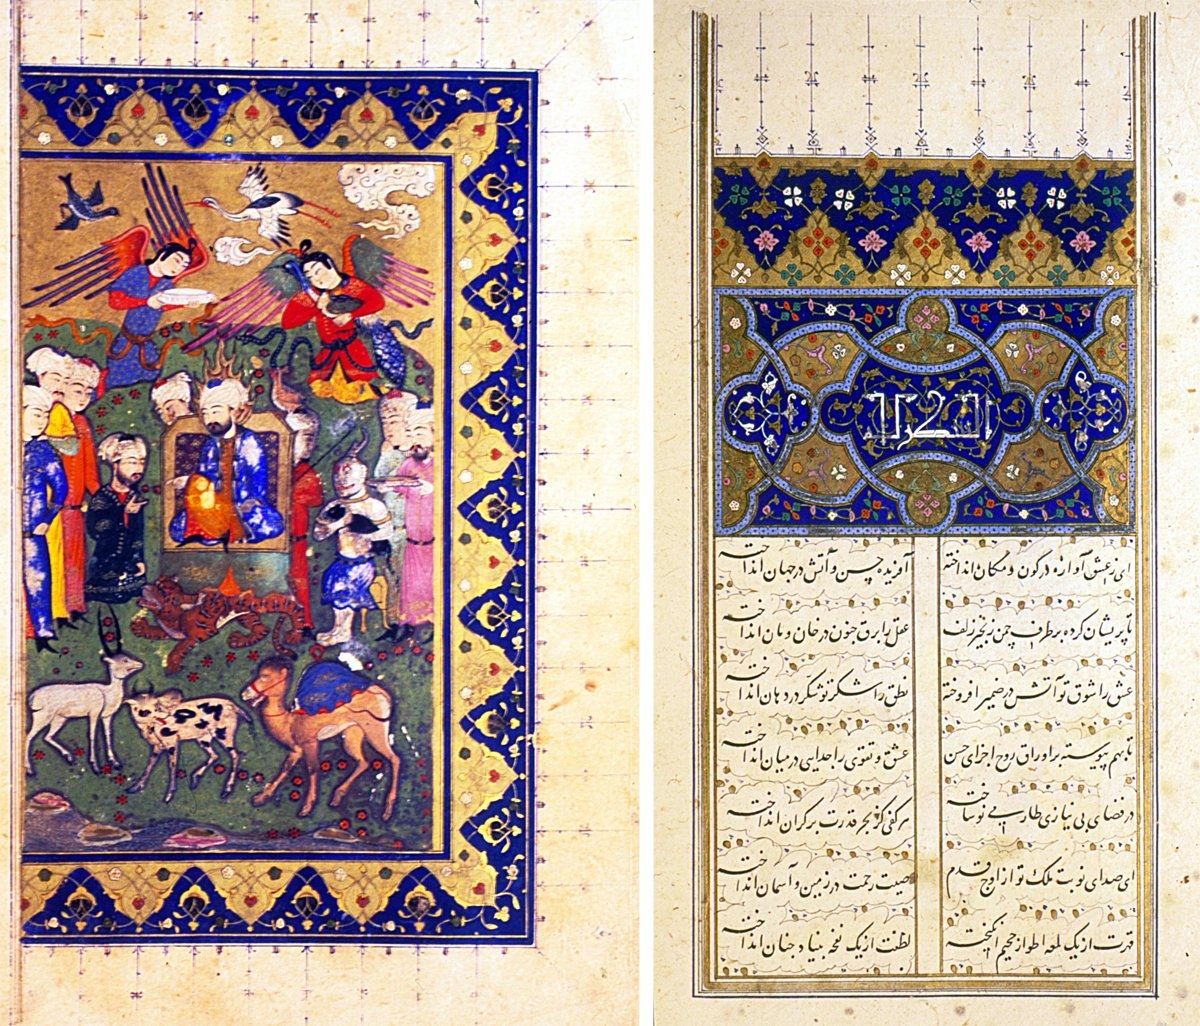 ای ز عشق آوازه در کون و مکان انداخته آفریده حسن و آتش در جهان انداخته
تا پریشان کرده بر طرف چمن زنجیر زلف عقل را برق جنون در خان و مان انداخته
عشق را شوق تو آتش در ضمیر افروخته نطق را شکر تو شکر در دهان انداخته
تا بهم پیوسته بر اوراق روح اجزای حسن عشق و تقوی را جدایی در میان انداخته
در فضای بی نیازی طارمی نو ساخته هر کفی کز بحر قدرت بر کران انداخته
ای صدای نوبت ملک تو از اوج قدم صیت رحمت در زمین و آسمان انداخته
قهرت از یک لمعه اطوار جحیم انگیخته لطفت از یک نفحه بنیاد جنان انداخته